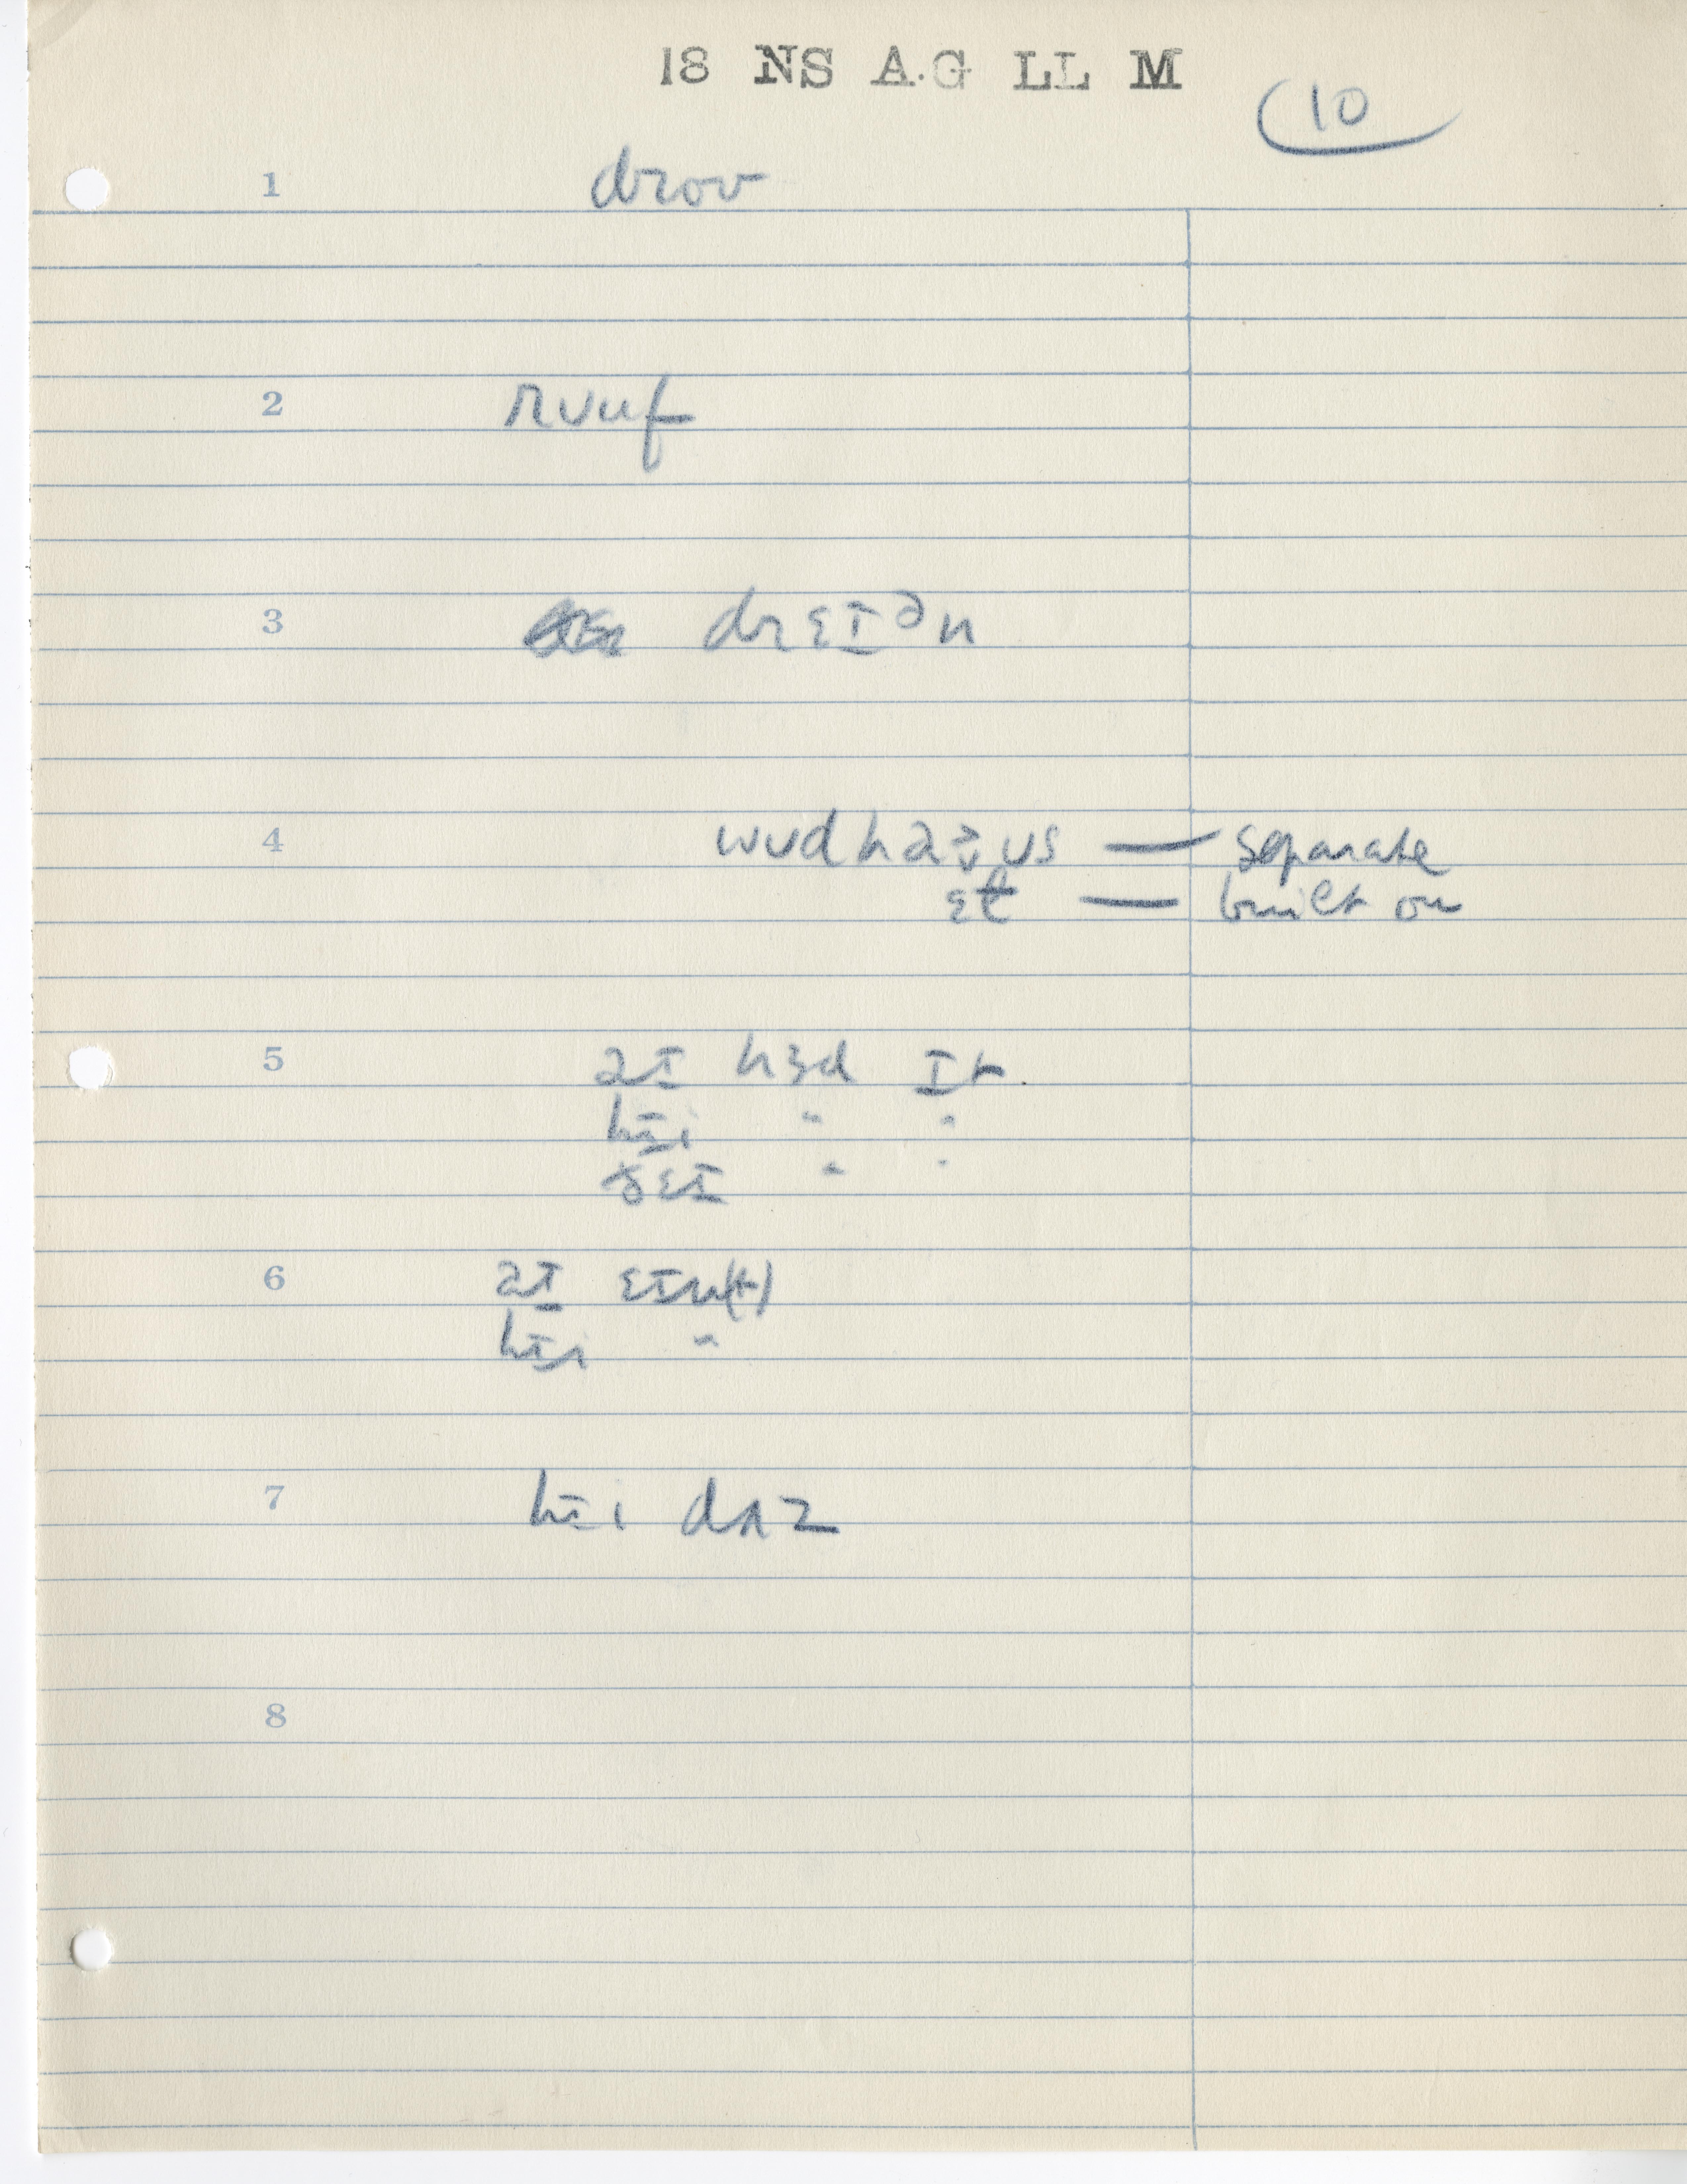 18 NS A.G LL M
10
1 drov
2 rʊuf
3 drɛɪᵊn
4 wʊdhaʊs — separate
ɛł — built on
5 aɪ hɜd ɪt
hɪi " "
ðɛɪ " "
6 aɪ ɛɪn(t)
hɪi "
7 hɪi dʌz
8